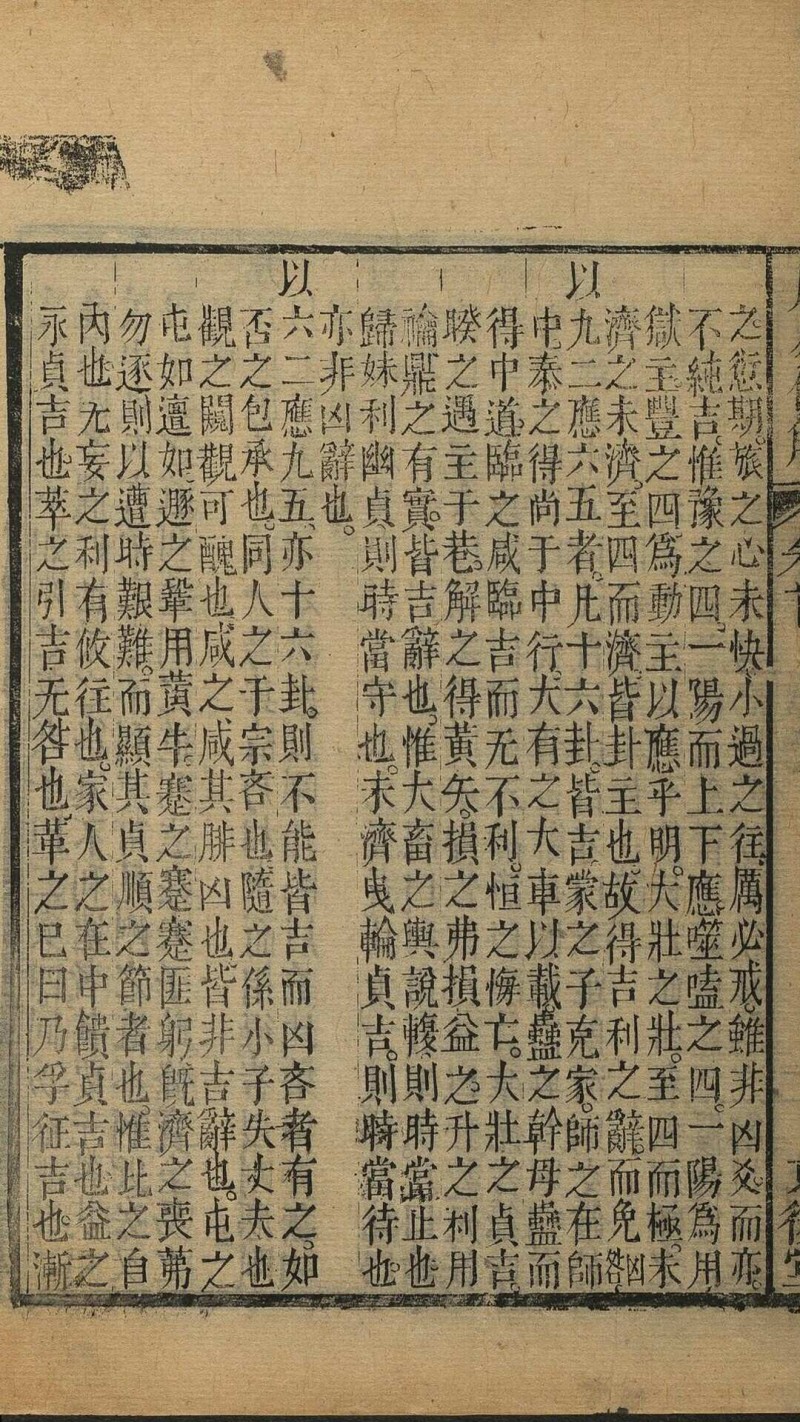 之愆期。旅之心未快、小過之往厲必戒。雖非凶爻而亦
不純吉。惟豫之四。一陽而上下應。噬嗑之四。一陽為用
獄主。豐之四為動主以應乎明。大壯之壯。至四而極。未
濟之未濟。至四而濟。皆卦主也。故得吉利之辭。而免凶咎
以九二應六五者。凡十六卦。皆吉。蒙之子克家。師之在師
中。泰之得尚于中行。大有之大車以載。蠱之幹母蠱而
得中道。臨之咸臨吉而无不利。恒之悔亡。大壯之貞吉。
睽之遇主于巷。解之得黃矢。損之弗損益之。升之利用
禴。鼎之有實。皆吉辭也。惟大畜之輿說輹。則時當止也
歸妹利幽貞。則時當守也。未濟曳輪貞吉。則時當待也。
亦非凶辭也。
以六二應九五、亦十六卦。則不能皆吉而凶吝者有之。如
否之包承也。同人之于宗吝也。隨之係小子失丈夫也
觀之闚觀可醜也。咸之咸其腓凶也。皆非吉辭也。屯之
屯如邅如。遯之鞏用黃牛。蹇之蹇蹇匪躬。既濟之喪茀
勿逐。則以遭時艱難。而顯其貞順之節者也。惟比之自
內也。无妄之利有攸往也。家人之在中饋貞吉也。益之
永貞吉也。萃之引吉无咎也。革之巳日乃孚征吉也。漸